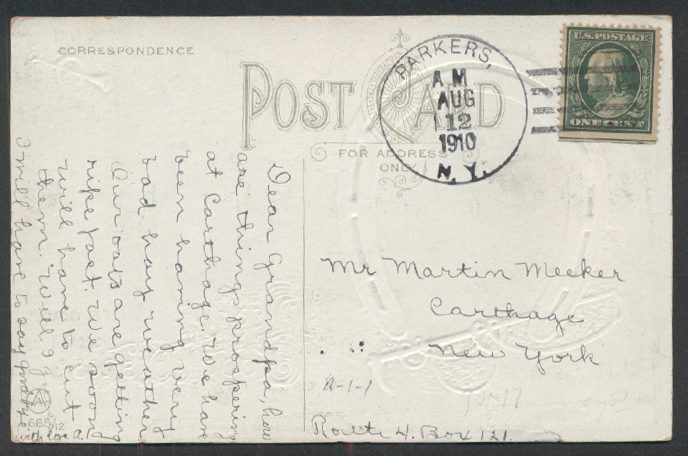 CORRESPONDENCE
POST CARD
FOR ADDRESS
ONLY
PARKERS,
A M
AUG
12
1910
N. Y.
U.S. POSTAGE
ONE CENT
Dear Grandpa, how
are things prospering
at Carthage. We have
been having very
bad hay weather
Our oats are getting
ripe fast. We soon
will have to cut
them. Well I g
I will have to say good bye
with love a.
Mr Martin Meeker
Carthage
New York
A-1-1
Route 4. Box 121.
665/12